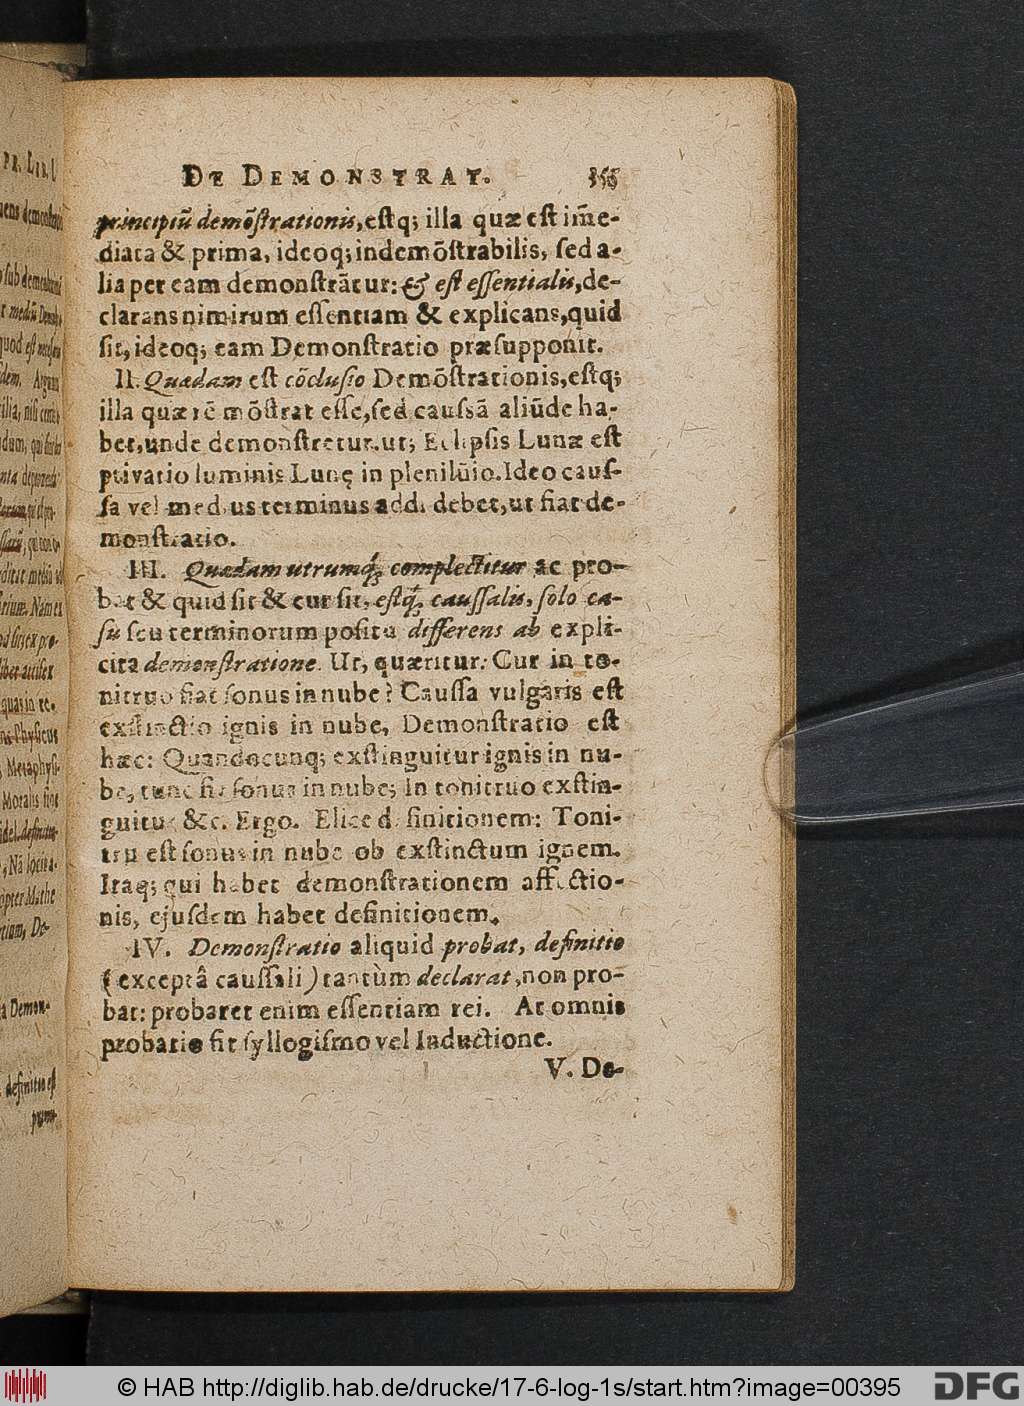 DE DEMONSTRAT. 355
principiũ demõſtrationis, eſtq; illa quæ eſt im̃e-
diata & prima, ideoq; indemõſtrabilis, ſed a-
lia per eam demonſtrãtur: & eſt eſſentialis, de-
clarans nimirum eſſentiam & explicans, quid
ſit, ideoq; eam Demonſtratio præſupponit.
II. Quædam eſt cõcluſio Demõſtrationis, eſtq;
illa quæ rẽ mõſtrat eſſe, ſed cauſſã aliũde ha-
bet, unde demonſtretur. ut; Eclipſis Lunæ eſt
privatio luminis Lunę in plenilũio. Ideo cauſ-
ſa vel medius terminus addi debet, ut fiat de-
monſtratio.
III. Quædam utrumq; complectitur ac pro-
bat & quid ſit & cur ſit, eſtq; cauſſalis, ſolo ca-
ſu ſeu terminorum poſitu differens ab expli-
cita demonſtratione. Ut, quæritur: Cur in to-
nitruo fiat ſonus in nube? Cauſſa vulgaris eſt
exſtinctio ignis in nube, Demonſtratio eſt
hæc: Quandocunq; exſtinguitur ignis in nu-
be, tunc fit ſonus in nube; In tonitruo exſtin-
guitur &c. Ergo. Elice definitionem: Toni-
tru eſt ſonus in nube ob exſtinctum ignem.
Itaq; qui habet demonſtrationem affectio-
nis, ejuſdem habet definitionem.
IV. Demonſtratio aliquid probat, definitio
(exceptâ cauſſali) tantùm declarat, non pro-
bat: probaret enim eſſentiam rei. At omnis
probatio fit ſyllogiſmo vel Inductione.
V. De-
© HAB http://diglib.hab.de/drucke/17-6-log-1s/start.htm?image=00395
DFG